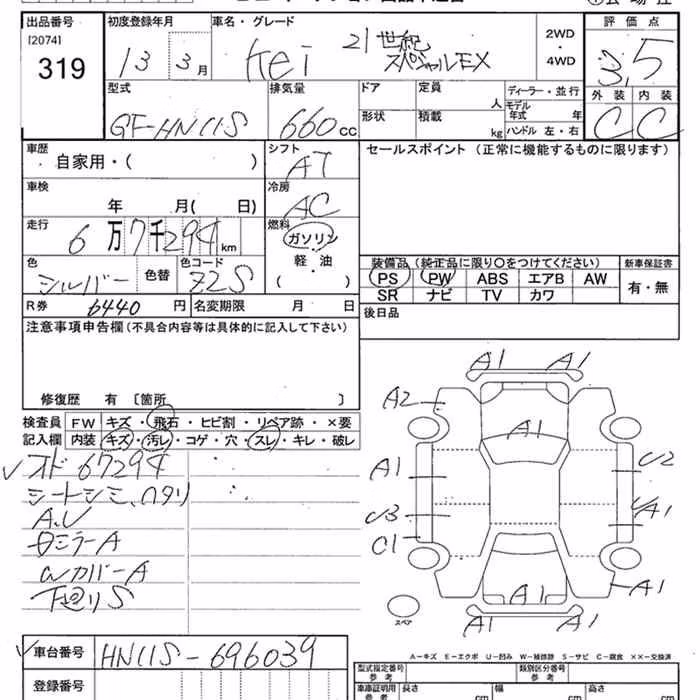 出品番号 初度登録年月 車名・グレード 2WD ・ 4WD 評価点
[2074]
319 13 3月 Kei 21世紀 スペシャルEX 3.5
型式 排気量 ドア 定員 人 ディーラー・並行 外装 内装
GF-HN11S 660cc 形状 積載 kg モデル年式 年 ハンドル 左・右 C C
車歴 シフト セールスポイント (正常に機能するものに限ります)
自家用・( ) AT
車検 冷房
年 月( 日) AC
走行 燃料
6万7千294km ガソリン
色 色替 色コード 軽・油 装備品(純正品に限り○をつけてください) 新車保証書
シルバー Z2S ( ) PS PW ABS エアB AW 有・無
R券 6440円 名変期限 月 日 SR ナビ TV カワ
注意事項申告欄(不具合内容等は具体的に記入して下さい) 後日品
修復歴 有 〔箇所 〕
検査員 FW キズ・飛石・ヒビ割・リペア跡・×要
記入欄 内装 キズ・汚レ・コゲ・穴・スレ・キレ・破レ
オド 67294
シートシミ、ヘタリ
A.U
ロミラーA
Wカバー A
下廻りS
A1 A1
A2
A1
A1 U2
U3 UA1
C1
A1 A1
A1 A1
スペア
A－キズ E－エクボ U－凹み W－補修跡 S－サビ C－腐食 ××－交換済
車台番号 HN11S-696039
型式指定番号 参考 類別区分番号 参考
登録番号 車庫証明用 参考 長さ cm 幅 cm 高さ cm